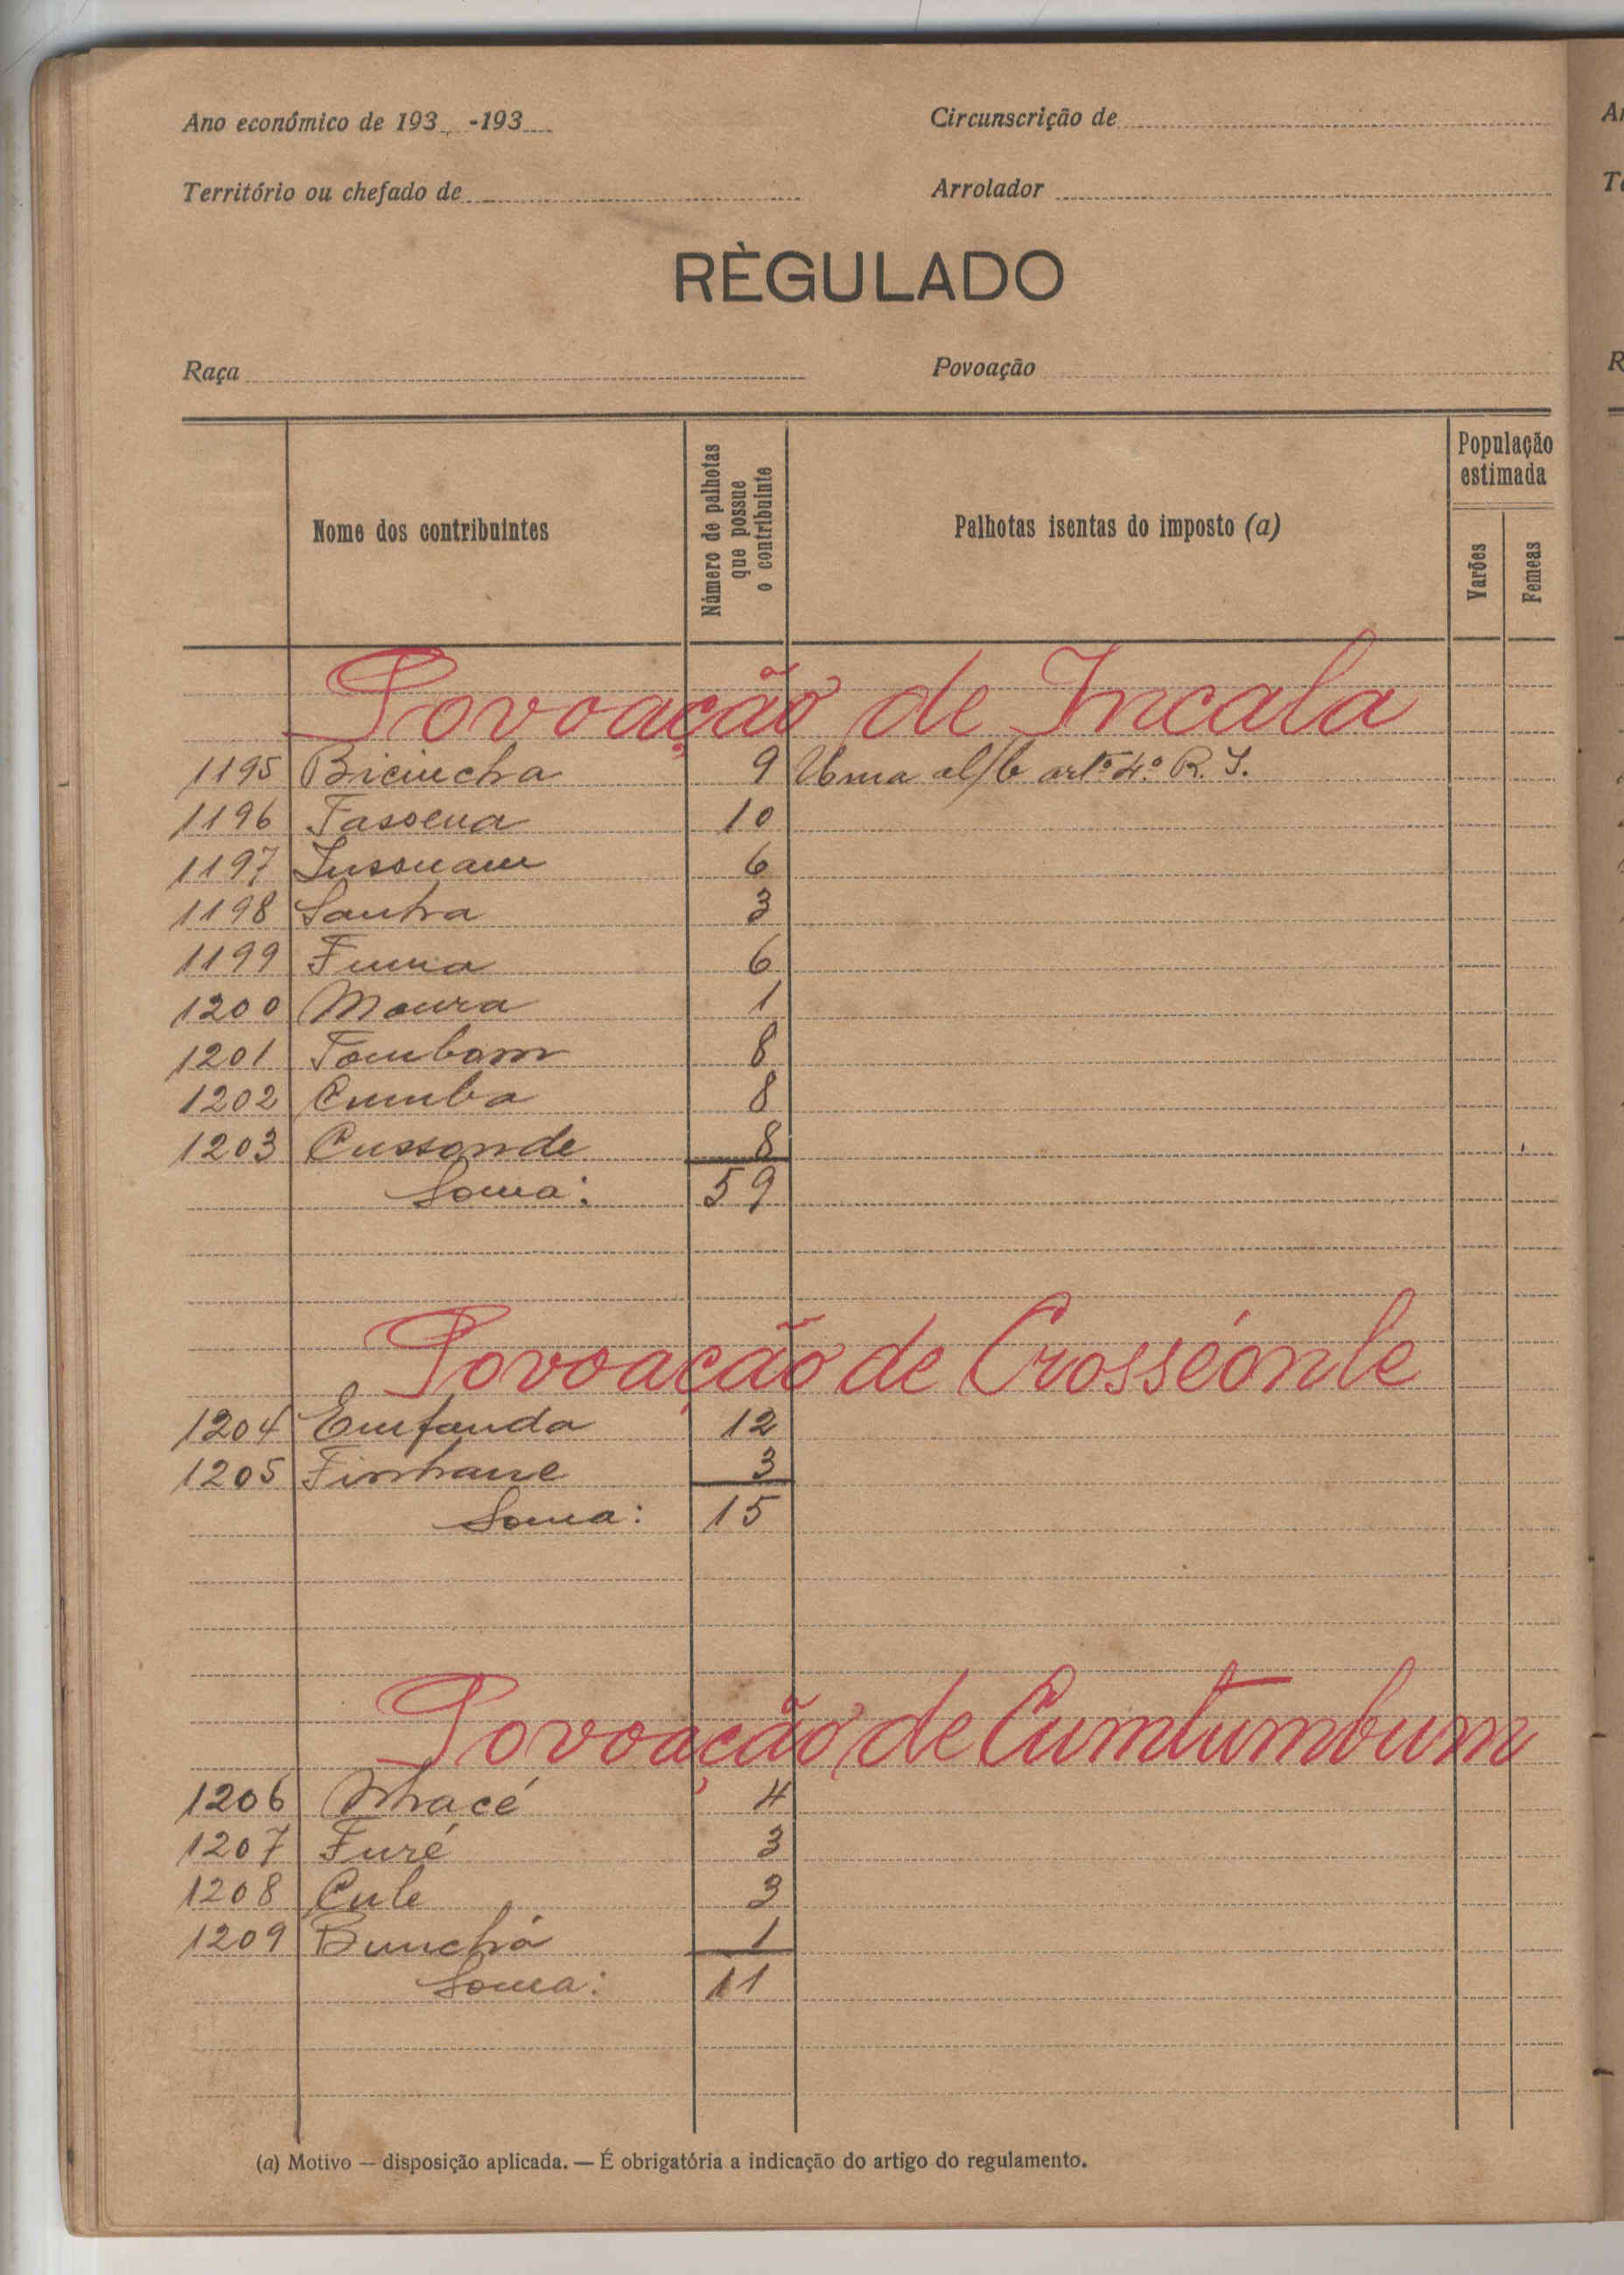 Ano económico de 193 -193
Circunscrição de
Território ou chefado de
Arrolador
RÈGULADO
Raça
Povoação
Nome dos contribuintes
Número de palhotas que possue o contribuinte
Palhotas isentas do imposto (a)
População estimada
Varões
Femeas
Povoação de Incala
1195 Biciucha 9 Uma al/b artº 4º R. I.
1196 Tassena 10
1197 6
1198 Santra 3
1199 6
1200 Moura 1
1201 Tambam 8
1202 Cumba 8
1203 Cussonde 8
Soma: 59
Povoação de Crosséonle
1204 Emfanda 12
1205 Finhane 3
Soma: 15
Povoação de Cumtumbum
1206 Nhacé 4
1207 Furé 3
1208 Cule 3
1209 Bunchá 1
Soma: 11
(a) Motivo — disposição aplicada. — É obrigatória a indicação do artigo do regulamento.